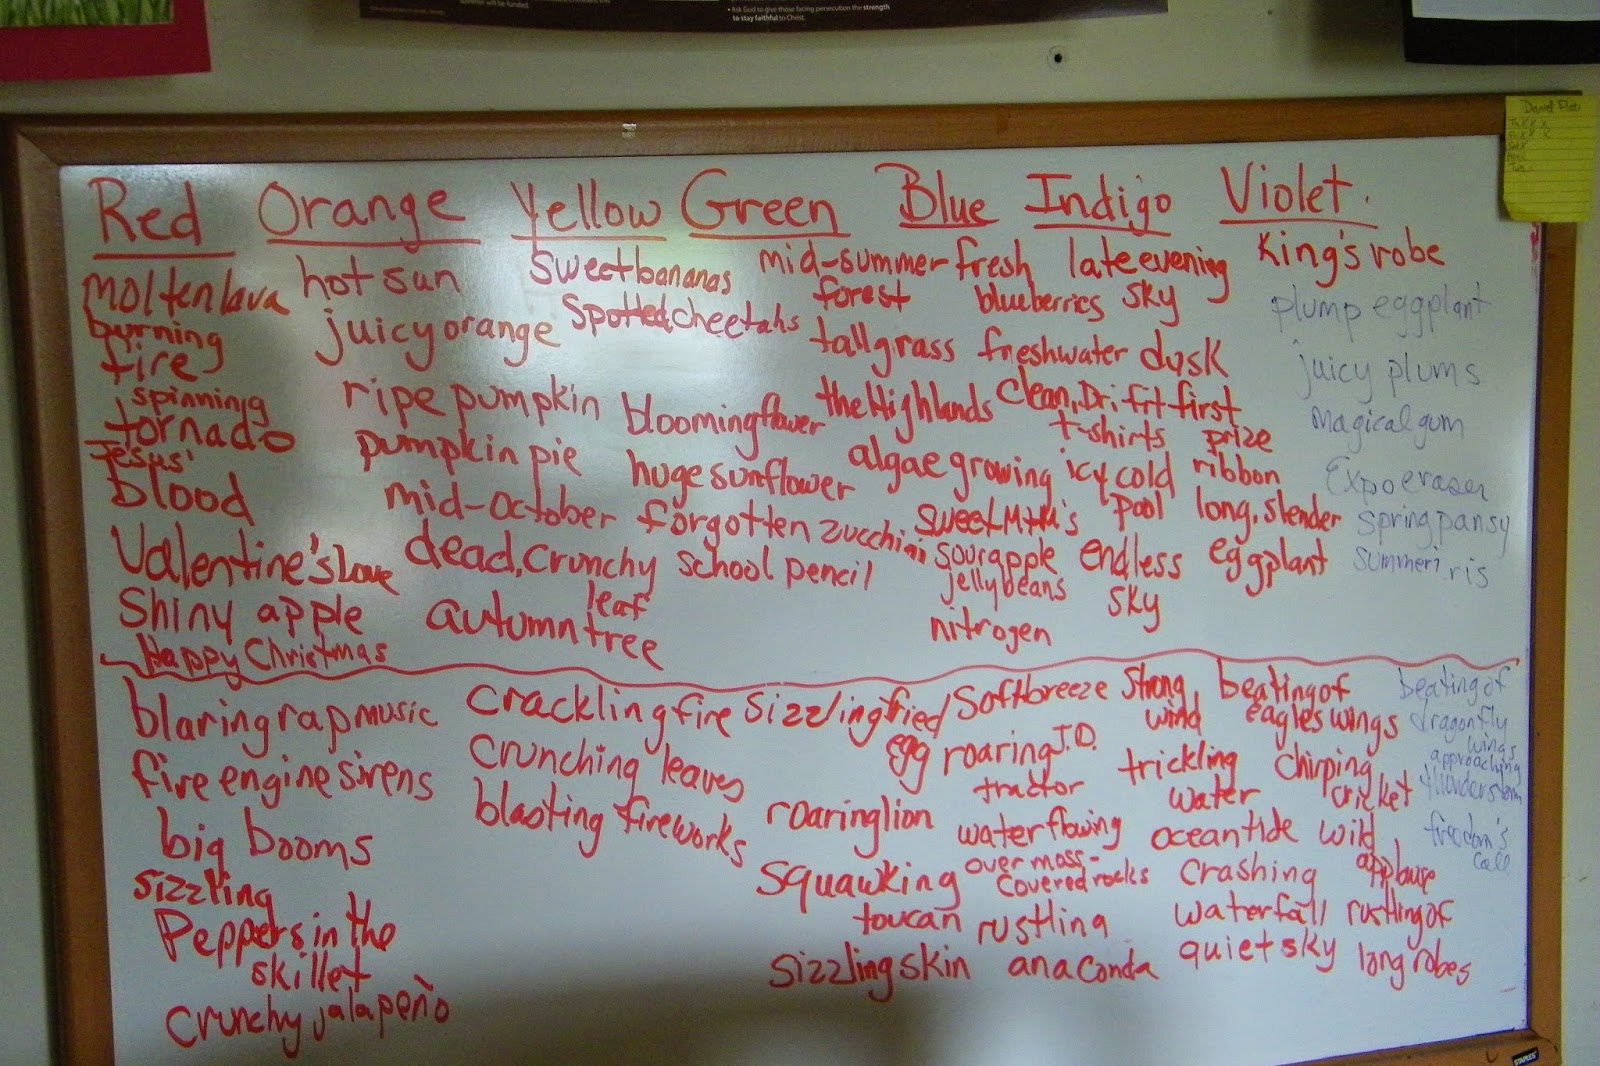 • Ask God to give those facing persecution the strength
to stay faithful to Christ.
Red Orange Yellow Green Blue Indigo Violet.
molten lava
burning
fire
spinning
tornado
Jesus'
blood
Valentine's Love
Shiny apple
Happy Christmas
hot sun
juicy orange
ripe pumpkin
pumpkin pie
mid-October
dead, crunchy
leaf
autumn tree
sweet bananas
Spotted cheetahs
blooming flower
huge sunflower
forgotten zucchini
school pencil
mid-summer
forest
tall grass
the Highlands
algae growing
sweet M+M's
sour apple
jellybeans
nitrogen
fresh
blueberries
freshwater
clean, Dri-fit
t-shirts
icy cold
pool
endless
sky
late evening
sky
dusk
first
prize
ribbon
long, slender
eggplant
King's robe
plump eggplant
juicy plums
magical gum
Expo eraser
spring pansy
summer iris
blaring rap music
fire engine sirens
big booms
sizzling
Peppers in the
skillet
crunchy jalapeño
crackling fire
crunching leaves
blasting fireworks
sizzling fried
egg
roaring lion
squawking
toucan
sizzling skin
Soft breeze
roaring J.D.
tractor
water flowing
over moss-
covered rocks
rustling
anaconda
Strong
wind
trickling
water
ocean tide
crashing
waterfall
quiet sky
beating of
eagles wings
chirping
cricket
wild
applause
rustling of
long robes
beating of
dragonfly
wings
approaching
thunderstorm
freedom's
call
STAPLES